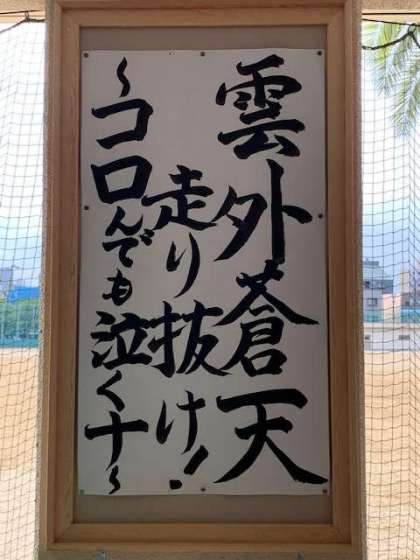 雲外蒼天
走り抜け！
～コロんでも泣くナ～